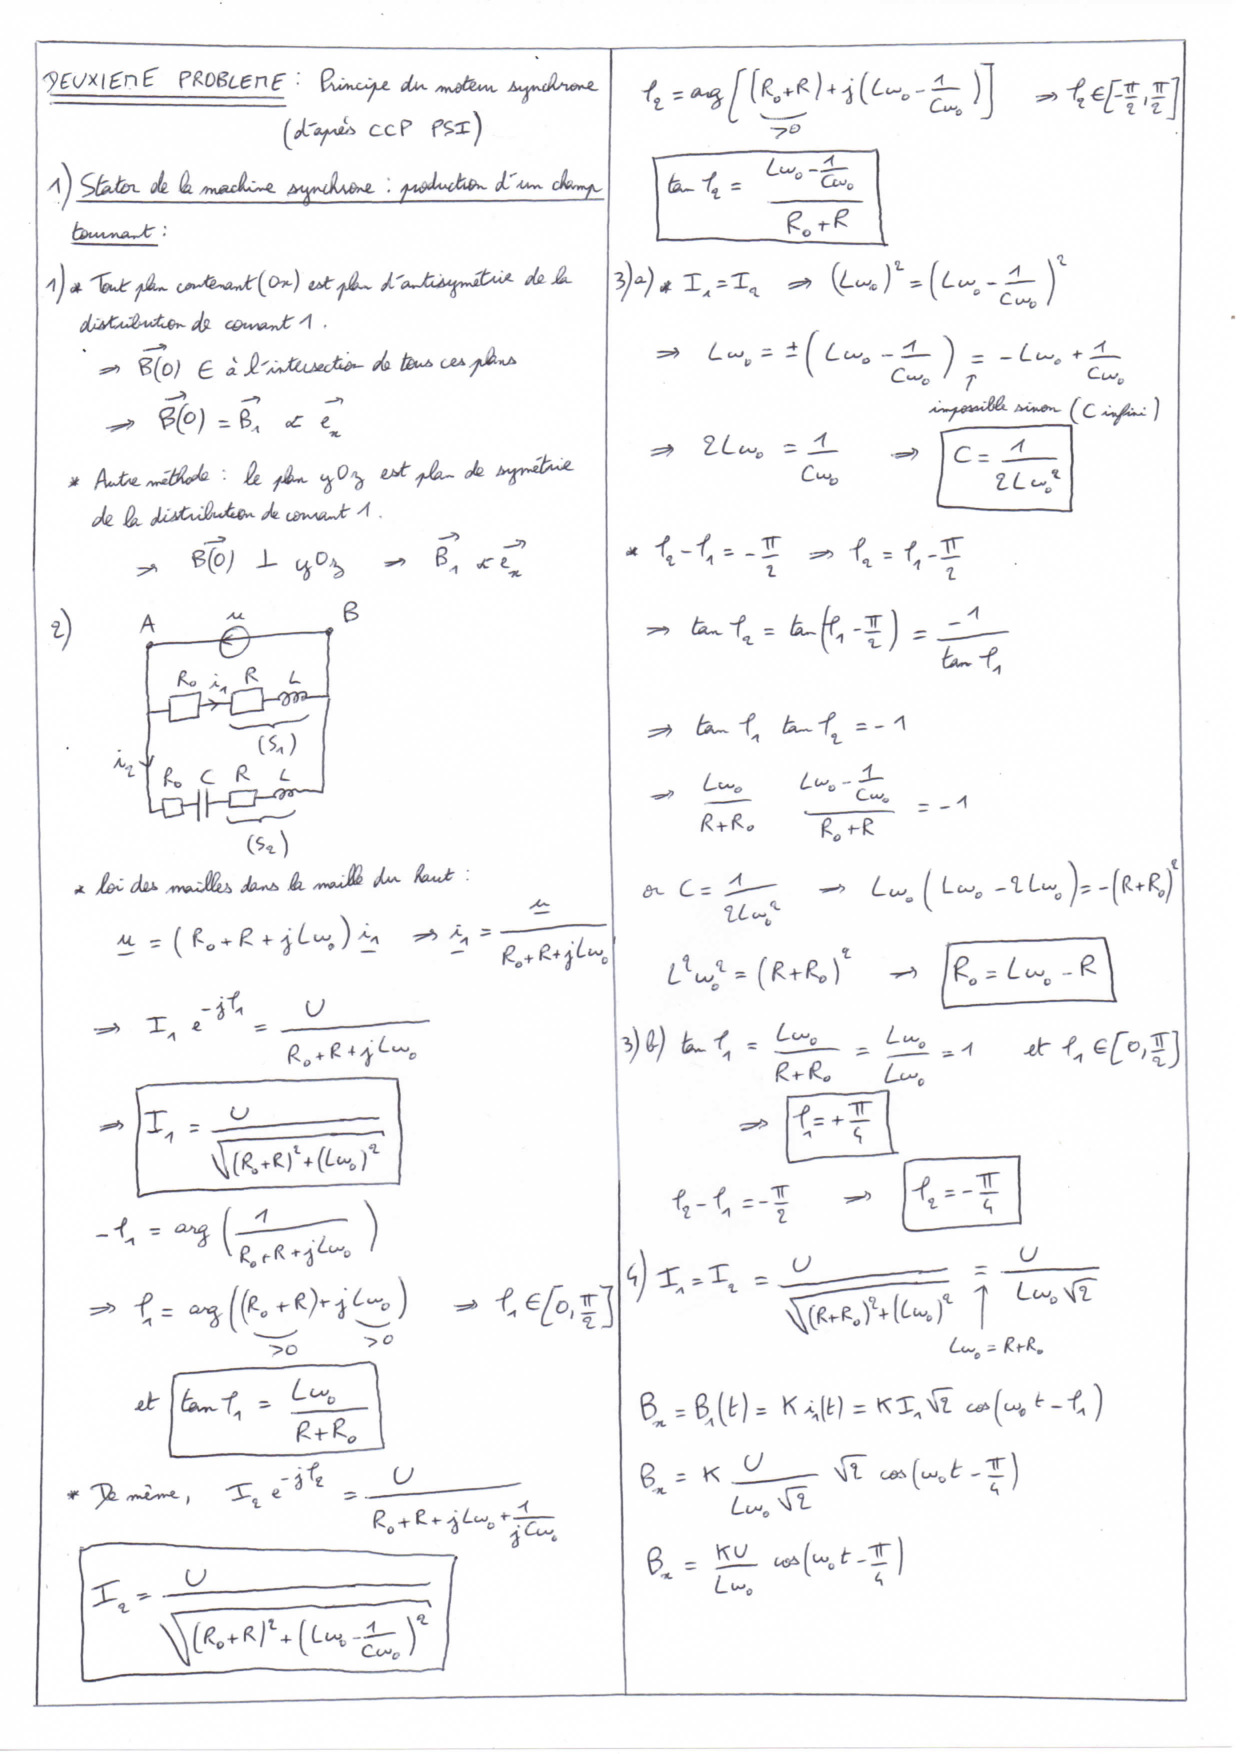 DEUXIEME PROBLEME : Principe du moteur synchrone
(d'après CCP PSI)
1) Stator de la machine synchrone : production d'un champ
tournant :
1) * Tout plan contenant (Ox) est plan d'antisymétrie de la
distribution de courant 1.
⇒ B(O)⃗ ∈ à l'intersection de tous ces plans
⇒ B(O)⃗ = B₁⃗ ∝ eₓ⃗
* Autre méthode : le plan yOz est plan de symétrie
de la distribution de courant 1.
⇒ B(O)⃗ ⊥ yOz ⇒ B₁⃗ ∝ eₓ⃗
2)
A u B
R₀ i₁ R L
(S₁)
i₂
R₀ C R L
(S₂)
* loi des mailles dans la maille du haut :
u = (R₀+R+jLω₀) i₁ ⇒ i₁ = u / (R₀+R+jLω₀)
⇒ I₁ e^(-jφ₁) = U / (R₀+R+jLω₀)
⇒ I₁ = U / √((R₀+R)²+(Lω₀)²)
-φ₁ = arg (1 / (R₀+R+jLω₀))
⇒ φ₁ = arg ((R₀+R)+jLω₀) ⇒ φ₁ ∈ [0, π/2]
>0 >0
et tan φ₁ = Lω₀ / (R+R₀)
* De même, I₂ e^(-jφ₂) = U / (R₀+R+jLω₀+1/(jCω₀))
I₂ = U / √((R₀+R)²+(Lω₀-1/(Cω₀))²)
φ₂ = arg [(R₀+R)+j(Lω₀-1/(Cω₀))] ⇒ φ₂ ∈ [-π/2, π/2]
>0
tan φ₂ = (Lω₀-1/(Cω₀)) / (R₀+R)
3) a) * I₁ = I₂ ⇒ (Lω₀)² = (Lω₀-1/(Cω₀))²
⇒ Lω₀ = ±(Lω₀-1/(Cω₀)) = -Lω₀+1/(Cω₀)
↑
impossible sinon (C infini)
⇒ 2Lω₀ = 1/(Cω₀) ⇒ C = 1/(2Lω₀²)
* φ₂-φ₁ = -π/2 ⇒ φ₂ = φ₁-π/2
⇒ tan φ₂ = tan(φ₁-π/2) = -1/(tan φ₁)
⇒ tan φ₁ tan φ₂ = -1
⇒ Lω₀/(R+R₀) (Lω₀-1/(Cω₀))/(R₀+R) = -1
or C = 1/(2Lω₀²) ⇒ Lω₀(Lω₀-2Lω₀) = -(R+R₀)²
L²ω₀² = (R+R₀)² ⇒ R₀ = Lω₀-R
3) b) tan φ₁ = Lω₀/(R+R₀) = Lω₀/Lω₀ = 1 et φ₁ ∈ [0, π/2]
⇒ φ₁ = +π/4
φ₂-φ₁ = -π/2 ⇒ φ₂ = -π/4
4) I₁ = I₂ = U / √((R+R₀)²+(Lω₀)²) = U / (Lω₀√2)
↑
Lω₀ = R+R₀
Bₓ = B₁(t) = K i₁(t) = K I₁√2 cos(ω₀t-φ₁)
Bₓ = K U/(Lω₀√2) √2 cos(ω₀t-π/4)
Bₓ = KU/(Lω₀) cos(ω₀t-π/4)